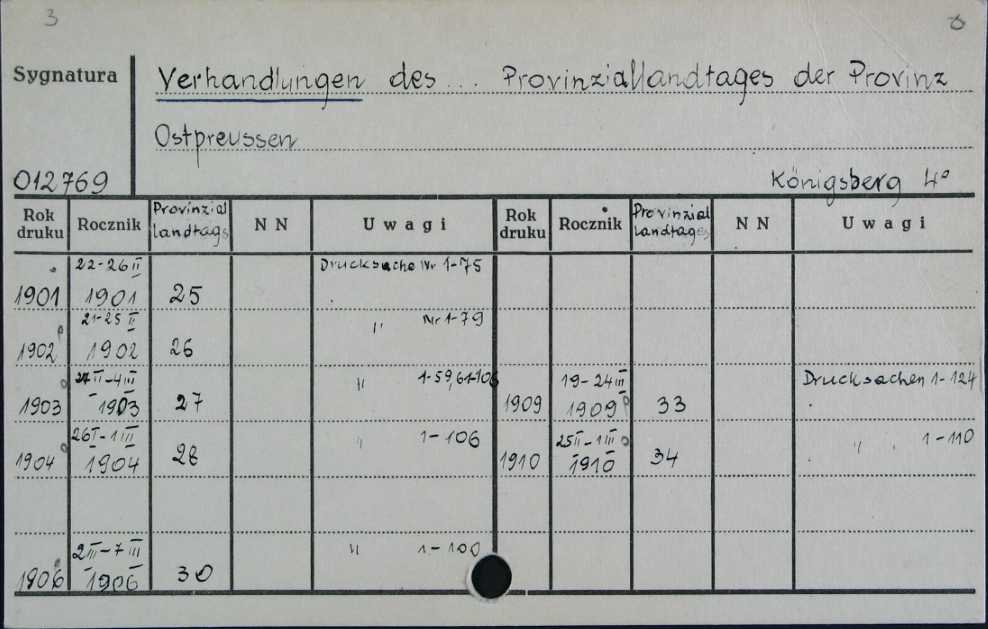 3 8
Sygnatura Verhandlungen des ... Provinziallandtages der Provinz
Ostpreussen
012769 Königsberg 4°
Rok druku Rocznik Provinzial landtags N N Uwagi Rok druku Rocznik Provinzial landtages N N Uwagi
22-26 II Drucksache Nr 1-75
1901 1901 25
21-25 II " Nr 1-79
1902 1902 26
II-4 III " 1-59, 61-106 19-24 III Drucksachen 1-124
1903 1903 27 1909 1909 33
26 I-1 III " 1-106 25 II-1 III " 1-110
1904 1904 28 1910 1910 34
2 III-7 III " 1-100
1906 1906 30